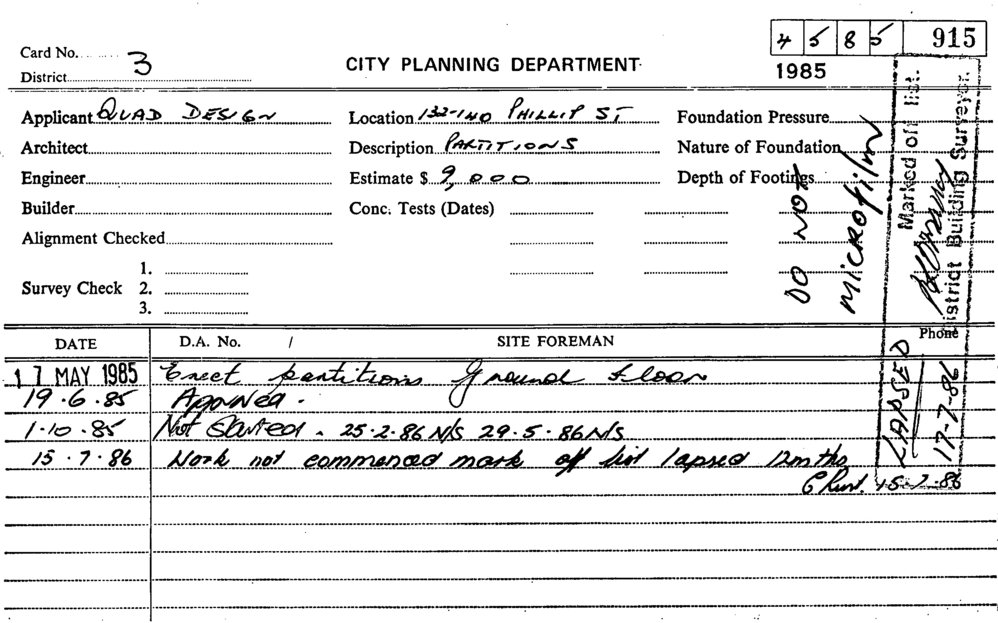 45 85 915
Card No. 3
District
CITY PLANNING DEPARTMENT
1985
Applicant QUAD DESIGN Location 132-140 PHILLIP ST, Foundation Pressure
Architect Description PARTITIONS Nature of Foundation
Engineer Estimate $ 9,000 Depth of Footings
Builder Conc. Tests (Dates)
Alignment Checked
1.
Survey Check 2.
3.
DO NOT
MICROFILM
Marked off list.
District Building Surveyor.
LAPSED
17-7-86
Phone
DATE D.A. No. / SITE FOREMAN
17 MAY 1985 Erect partitions Ground Floor
19.6.85 Approved.
1.10.85 Not Started. 25.2.86 N/S 29.5.86 N/S
15.7.86 Work not commenced mark off list lapsed 12mths
15.7.86